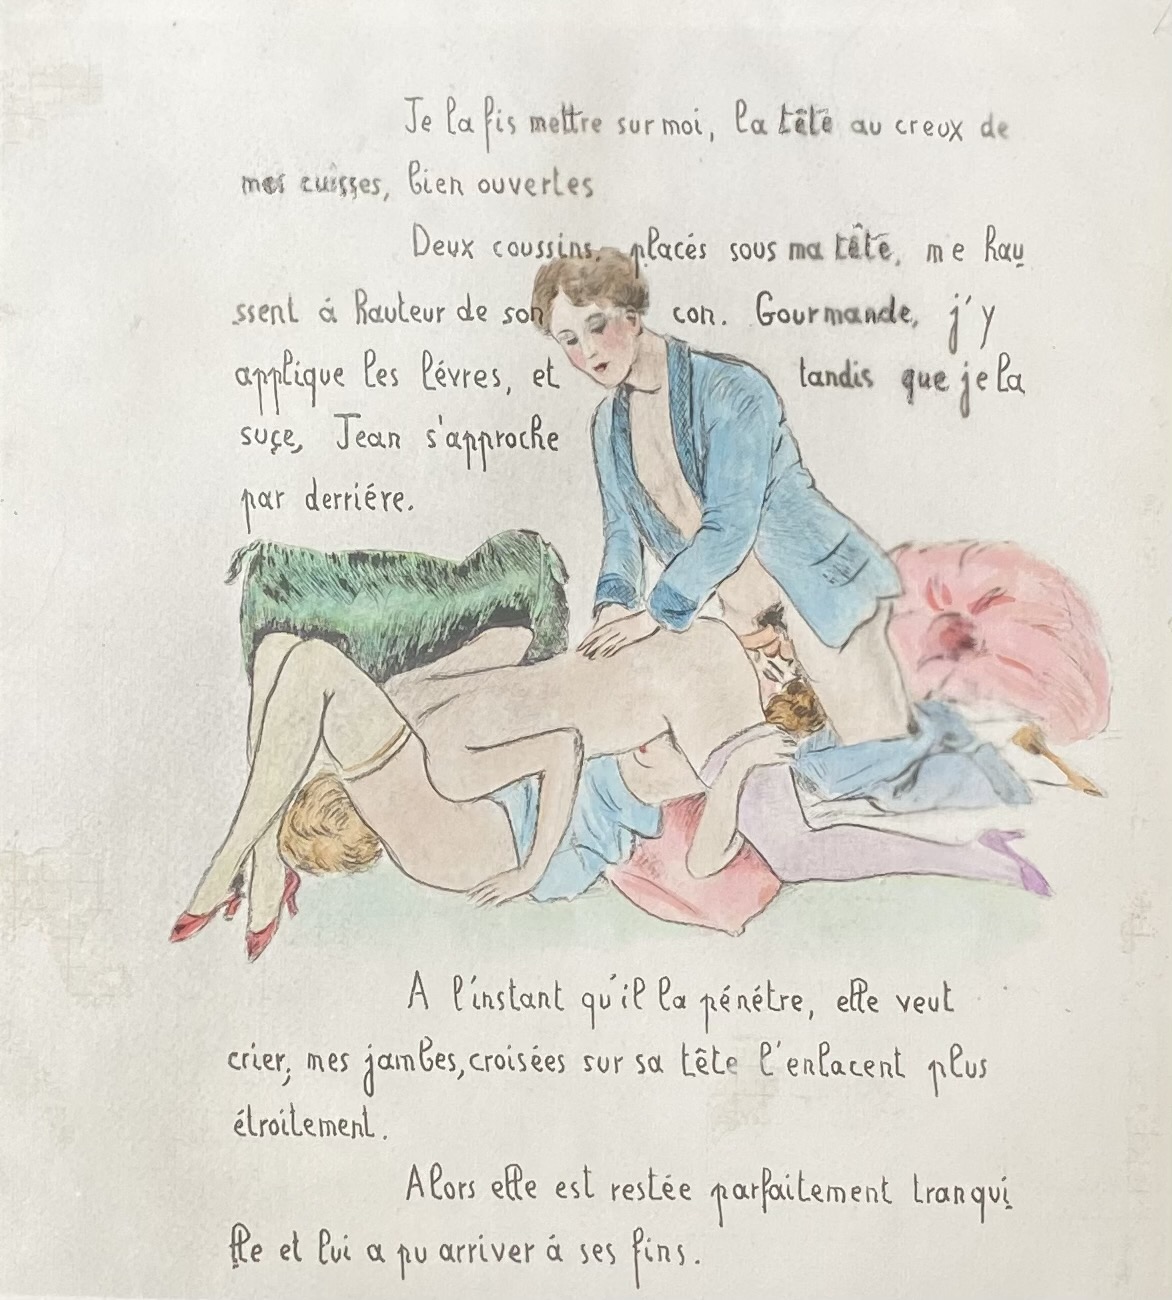 Je la fis mettre sur moi, la tête au creux de
mes cuisses, bien ouvertes
Deux coussins, placés sous ma tête, me hau
ssent á hauteur de son con. Gourmande, j'y
applique les lévres, et tandis que je la
suçe, Jean s'approche
par derriére.
A l'instant qu'il la pénétre, elle veut
crier; mes jambes, croisées sur sa tête l'enlacent plus
étroitement.
Alors elle est restée parfaitement tranqui
lle et lui a pu arriver á ses fins.